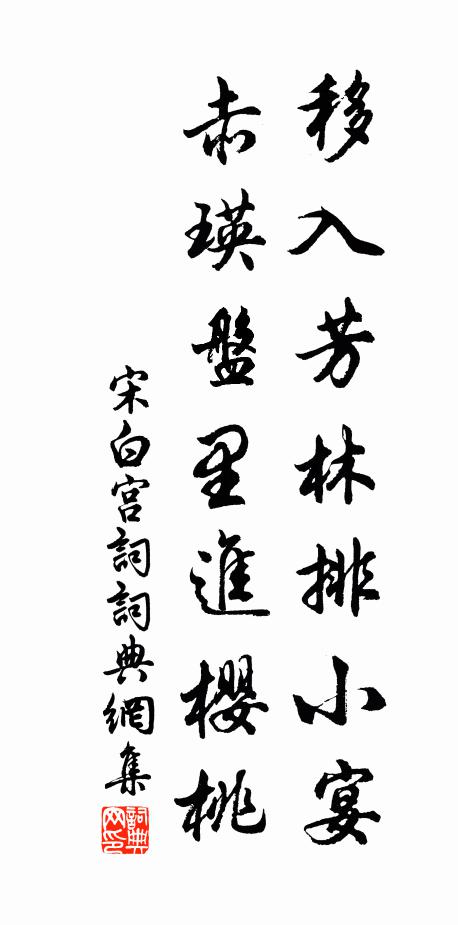 移入芳林排小宴
赤瑛盤里進櫻桃
宋白宮詞詞典網集
詞典網印